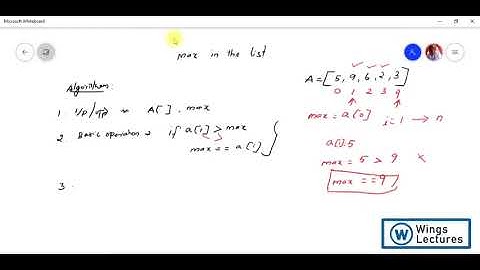 Microsoft Whiteboard
max in the list
Algorithm:
1 I/p/o/p → A[ ] . max
2 Basic operation → if a[i] > max
max == a[i]
3 .
A = [5, 9, 6, 2, 3]
0 1 2 3 9
max = a[0] i = 1 → n
a[i].5
max = 5 > 9 x
max == 9
W Wings
Lectures